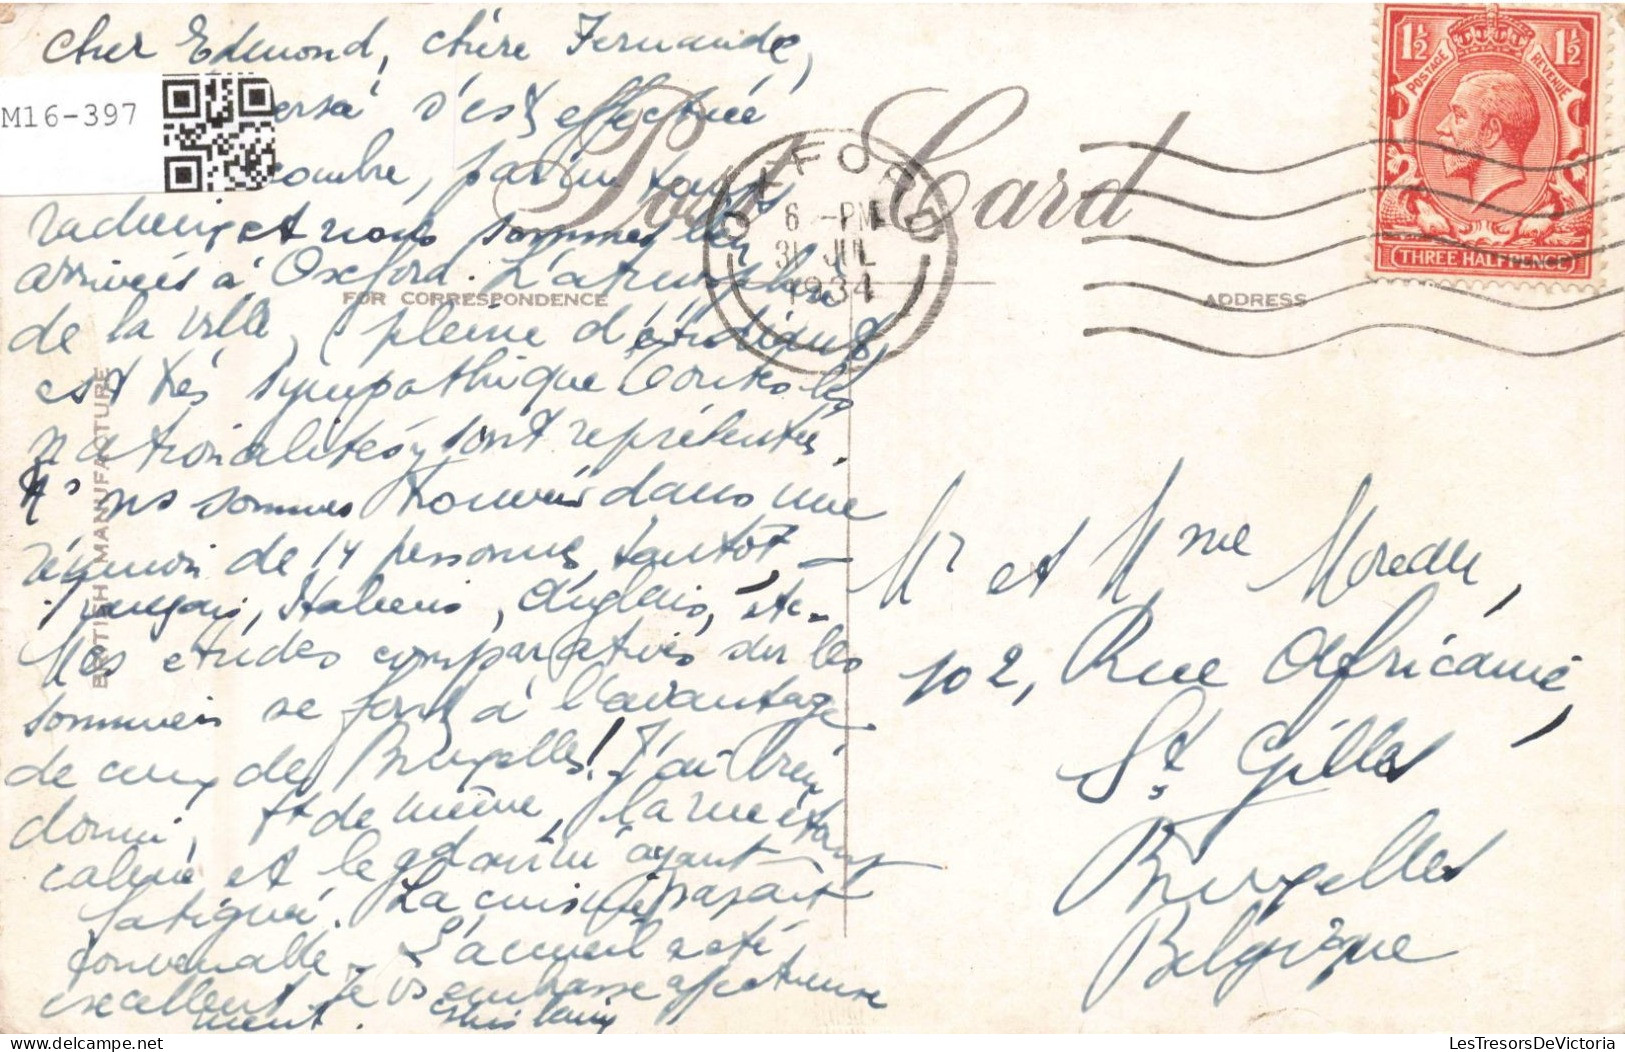 Cher Edmond, chère Fernande,
M16-397
s'est effectuée
Post Card
sans
et nous sommes bien
arrivées à Oxford. L'atmosphère
de la ville, pleine d'étudiants,
est très sympathique toutes les
nationalités y sont représentées.
Ns ns sommes trouvées dans une
réunion de 14 personnes, tantôt
Français, Italiens, Anglais, etc.
Nos études comparatives sur les
sommiers se font à l'avantage
de ceux de Bruxelles! J'ai bien
dormi, tt de même, la mer étant
calme et le grand air ayant
fatigué. La cuisine paraît
convenable. L'accueil a été
excellent. Je vs embrasse affectueuse
ment. Ghislaine
FOR CORRESPONDENCE
BRITISH MANUFACTURE
OXFORD
6 - PM
31 JUL
1934
1½ 1½
POSTAGE REVENUE
THREE HALFPENCE
ADDRESS
Mr et Mme Moreau,
102, Rue Africaine,
St Gilles
Bruxelles
Belgique
LesTresorsDeVictoria